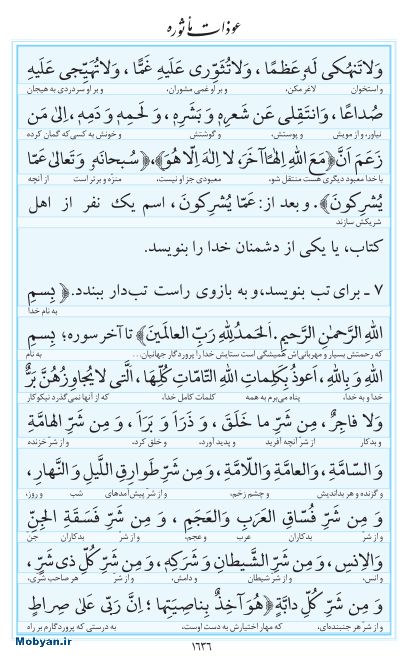 عوذات مأثوره
وَلاتَنهَکی لَهُ عَظمًا، وَلاتُثَوِّری عَلَیهِ غَمًّا، وَلاتُهَیِّجی عَلَیهِ
و استخوان لاغر مکن، و بر او غمی مشوران، و بر او سردردی به هیجان
صُداعًا، وَانتَقِلی عَن شَعرِهِ وَ بَشَرِهِ، وَ لَحمِهِ وَ دَمِهِ، اِلیٰ مَن
نیاور، و از مویش و پوستش، و گوشتش و خونش به کسی‌که گمان کرده
زَعَمَ اَنَّ﴿مَعَ اللهِ اِلٰهًا آخَرَ، لا اِلٰهَ اِلّا هُوَ﴾،﴿سُبحانَهُ وَ تَعالیٰ عَمّا
با خدا معبود دیگری هست منتقل شو، معبودی جز او نیست، منزّه و برتر است از آنچه
یُشرِکونَ﴾. و بعد از: عَمّا یُشرِکونَ، اسم یک نفر از اهل
شریکش سازند
کتاب، یا یکی از دشمنان خدا را بنویسد.
۷ ـ برای تب بنویسد، و به بازوی راست تب‌دار ببندد. ﴿بِسمِ
به نام خدا
اللهِ الرَّحمٰنِ الرَّحیمِ. اَلحَمدُلِلّٰهِ رَبِّ العالَمینَ﴾ تا آخر سوره؛ بِسمِ
که رحمتش بسیار و مهربانی‌اش همیشگی است ستایش خدا را پروردگار جهانیان... به نام
اللهِ وَ بِاللهِ، اَعوذُ بِکَلِماتِ اللهِ التّامّاتِ کُلِّها، اَلَّتی لا یُجاوِزُهُنَّ بَرٌّ
خدا و به خدا، پناه می‌برم به همه کلمات کامل خدا، که از آنها نمی‌گذرد نیکوکار
وَلا فاجِرٌ، مِن شَرِّ ما خَلَقَ، وَ ذَرَاَ وَ بَرَاَ، وَ مِن شَرِّ الهامَّةِ
و بدکار از شرّ آنچه آفرید و پدید آورد، و خلق کرد، و از شرّ خزنده
وَ السّامَّةِ، وَالعامَّةِ وَاللّامَّةِ، وَ مِن شَرِّ طَوارِقِ اللَّیلِ وَ النَّهارِ،
و گزنده و هر بداندیش و چشم زخم، و از شرّ پیش‌آمدهای شب و روز،
وَ مِن شَرِّ فُسّاقِ العَرَبِ وَ العَجَمِ، وَ مِن شَرِّ فَسَقَةِ الجِنِّ
و از شرّ بدکاران عرب و عجم، و از شرّ بدکاران جنّ
وَ الاِنسِ، وَ مِن شَرِّ الشَّیطانِ وَ شَرَکِهِ، وَ مِن شَرِّ کُلِّ ذی شَرٍّ،
و انس، و از شرّ شیطان و دامش، و از شرّ هر صاحب شرّی،
وَ مِن شَرِّ کُلِّ دابَّةٍ ﴿هُوَ آخِذٌ بِناصِیَتِها؛ اِنَّ رَبّی عَلیٰ صِراطٍ
و از شرّ هر جنبنده‌ای، که مهار اختیارش به دست اوست، به درستی که پروردگارم بر راه
۱۶۳۶
Mobyan.ir